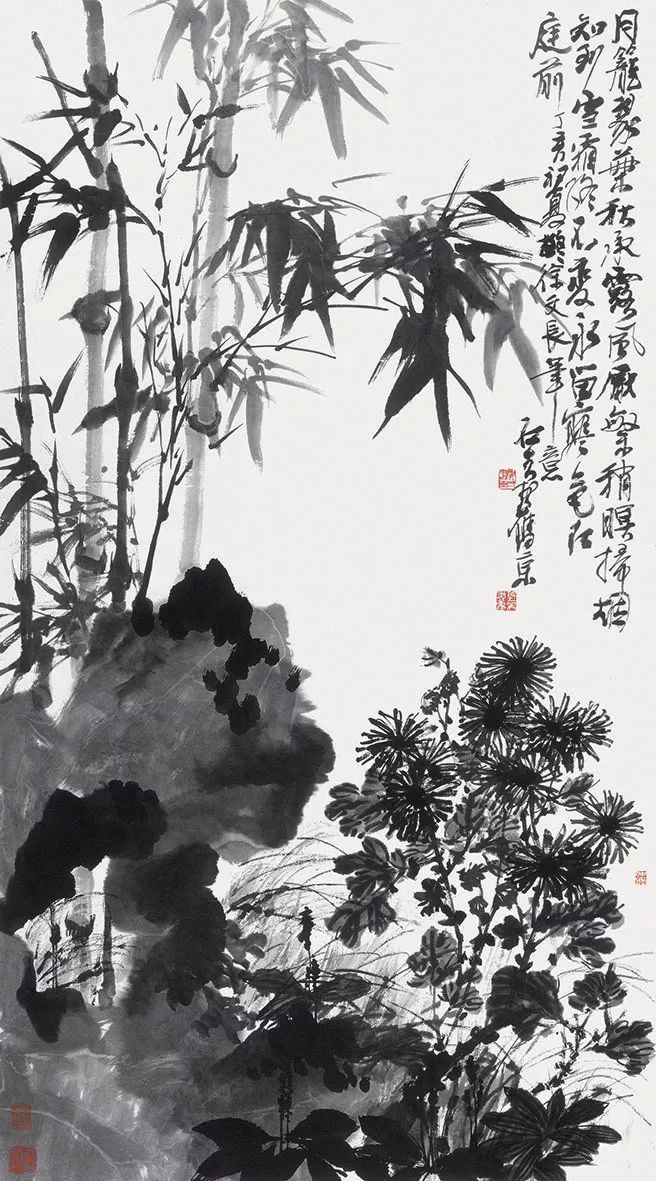 月籠翠葉秋承露風繁稍暝掃烟
知到雪霜終不變永留寒色在
庭前丁亥初夏擬徐文長筆意
石舊京